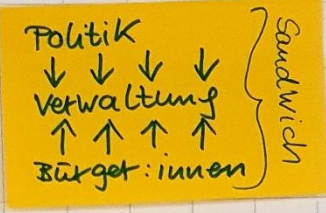 Politik
↓ ↓ ↓ ↓
Verwaltung
↑ ↑ ↑ ↑
Bürger:innen
Sandwich